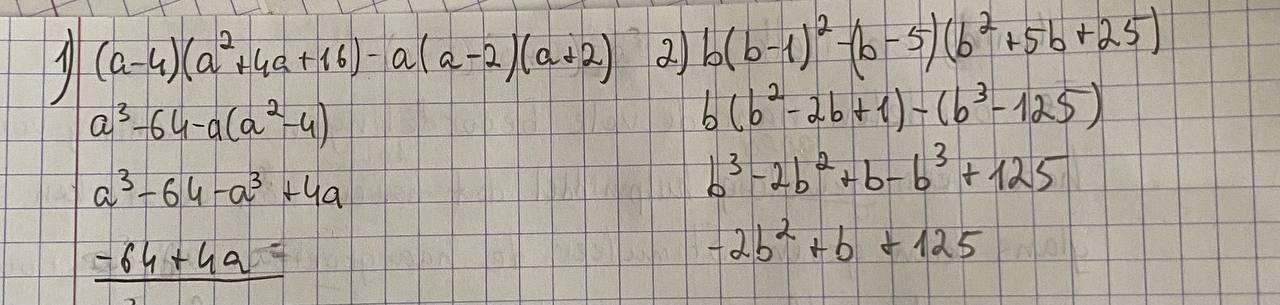 1) (a-4)(a²+4a+16)-a(a-2)(a+2)
a³-64-a(a²-4)
a³-64-a³+4a
-64+4a=
2) b(b-1)²-(b-5)(b²+5b+25)
b(b²-2b+1)-(b³-125)
b³-2b²+b-b³+125
-2b²+b+125